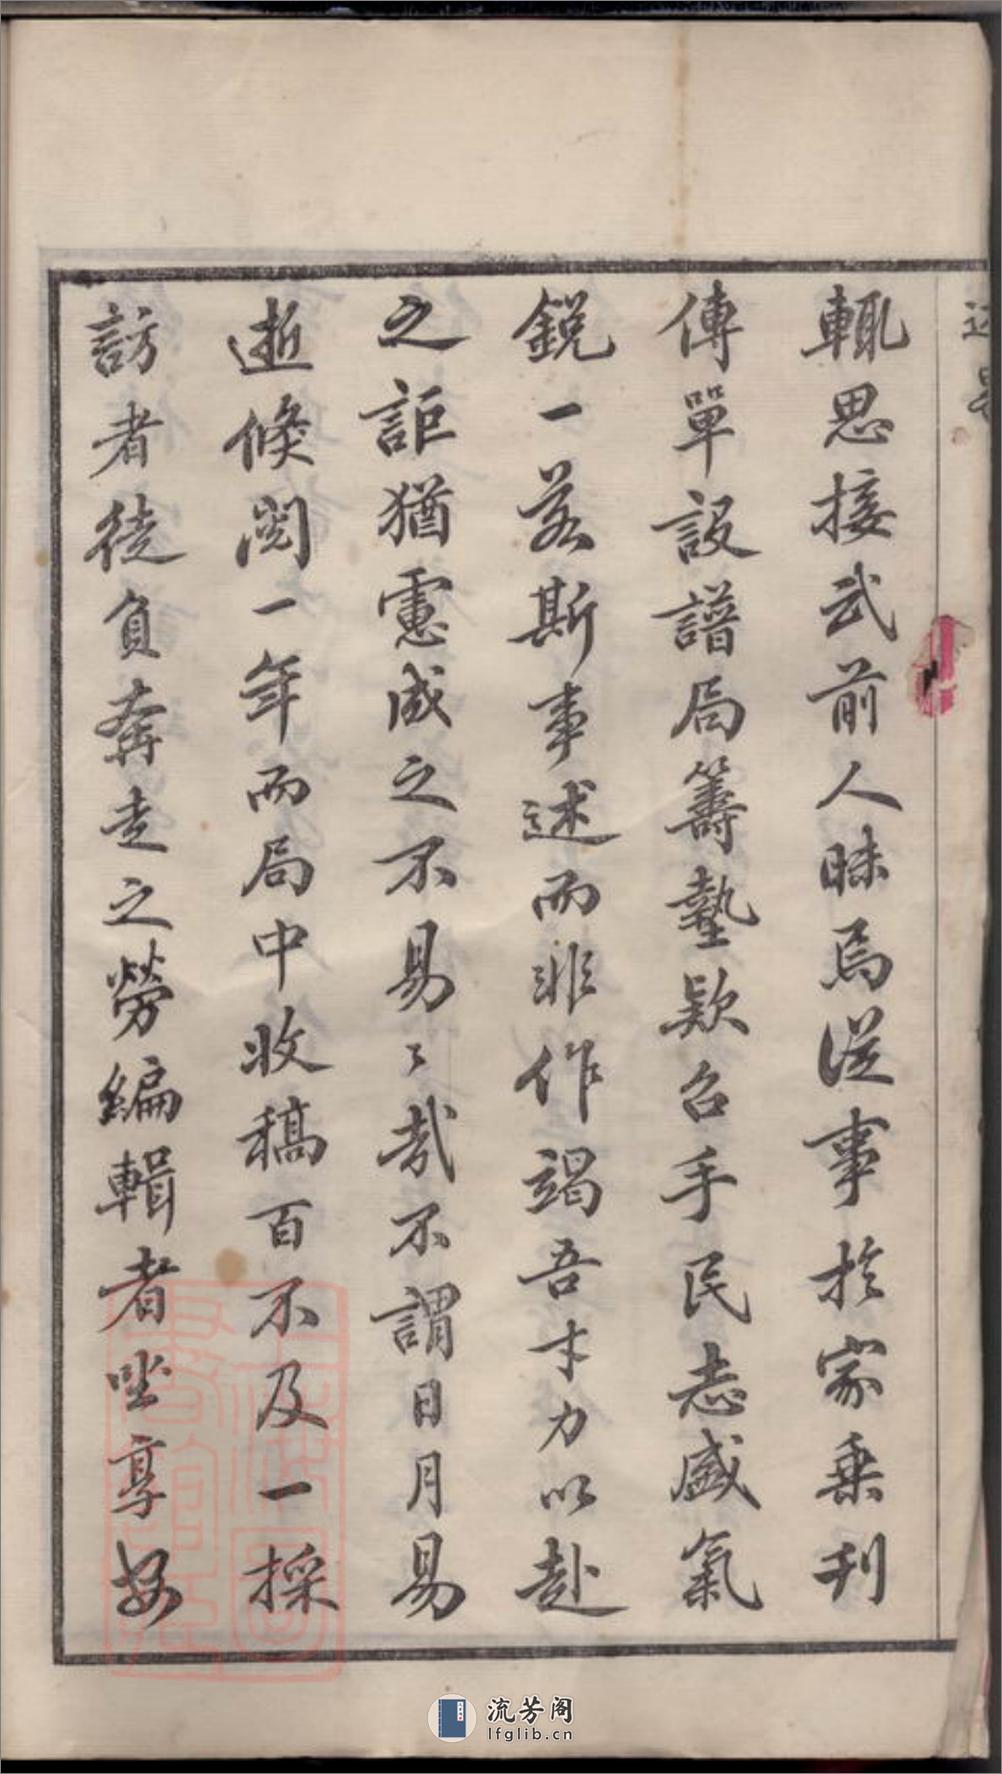 輒思接武前人昧焉從事於家乘刊
傳單設譜局籌墊欵召手民志盛氣
銳一若斯事述而非作竭吾才力以赴
之詎猶慮成之不易々哉不謂日月易
逝倏閱一年而局中收稿百不及一採
訪者徒負奔走之勞編輯者坐享安
流芳阁
lfglib.cn